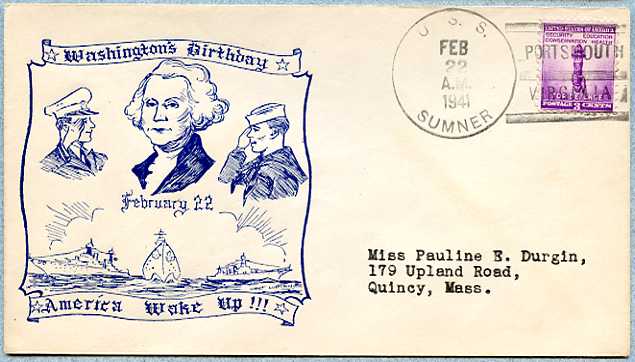 Washington's Birthday
February 22
America Wake Up !!!
U. S. S.
FEB
22
A.M.
1941
SUMNER
PORTSMOUTH
VIRGINIA
UNITED STATES OF AMERICA
SECURITY EDUCATION
CONSERVATION HEALTH
FOR DEFENSE
POSTAGE 3 CENTS
Miss Pauline E. Durgin,
179 Upland Road,
Quincy, Mass.